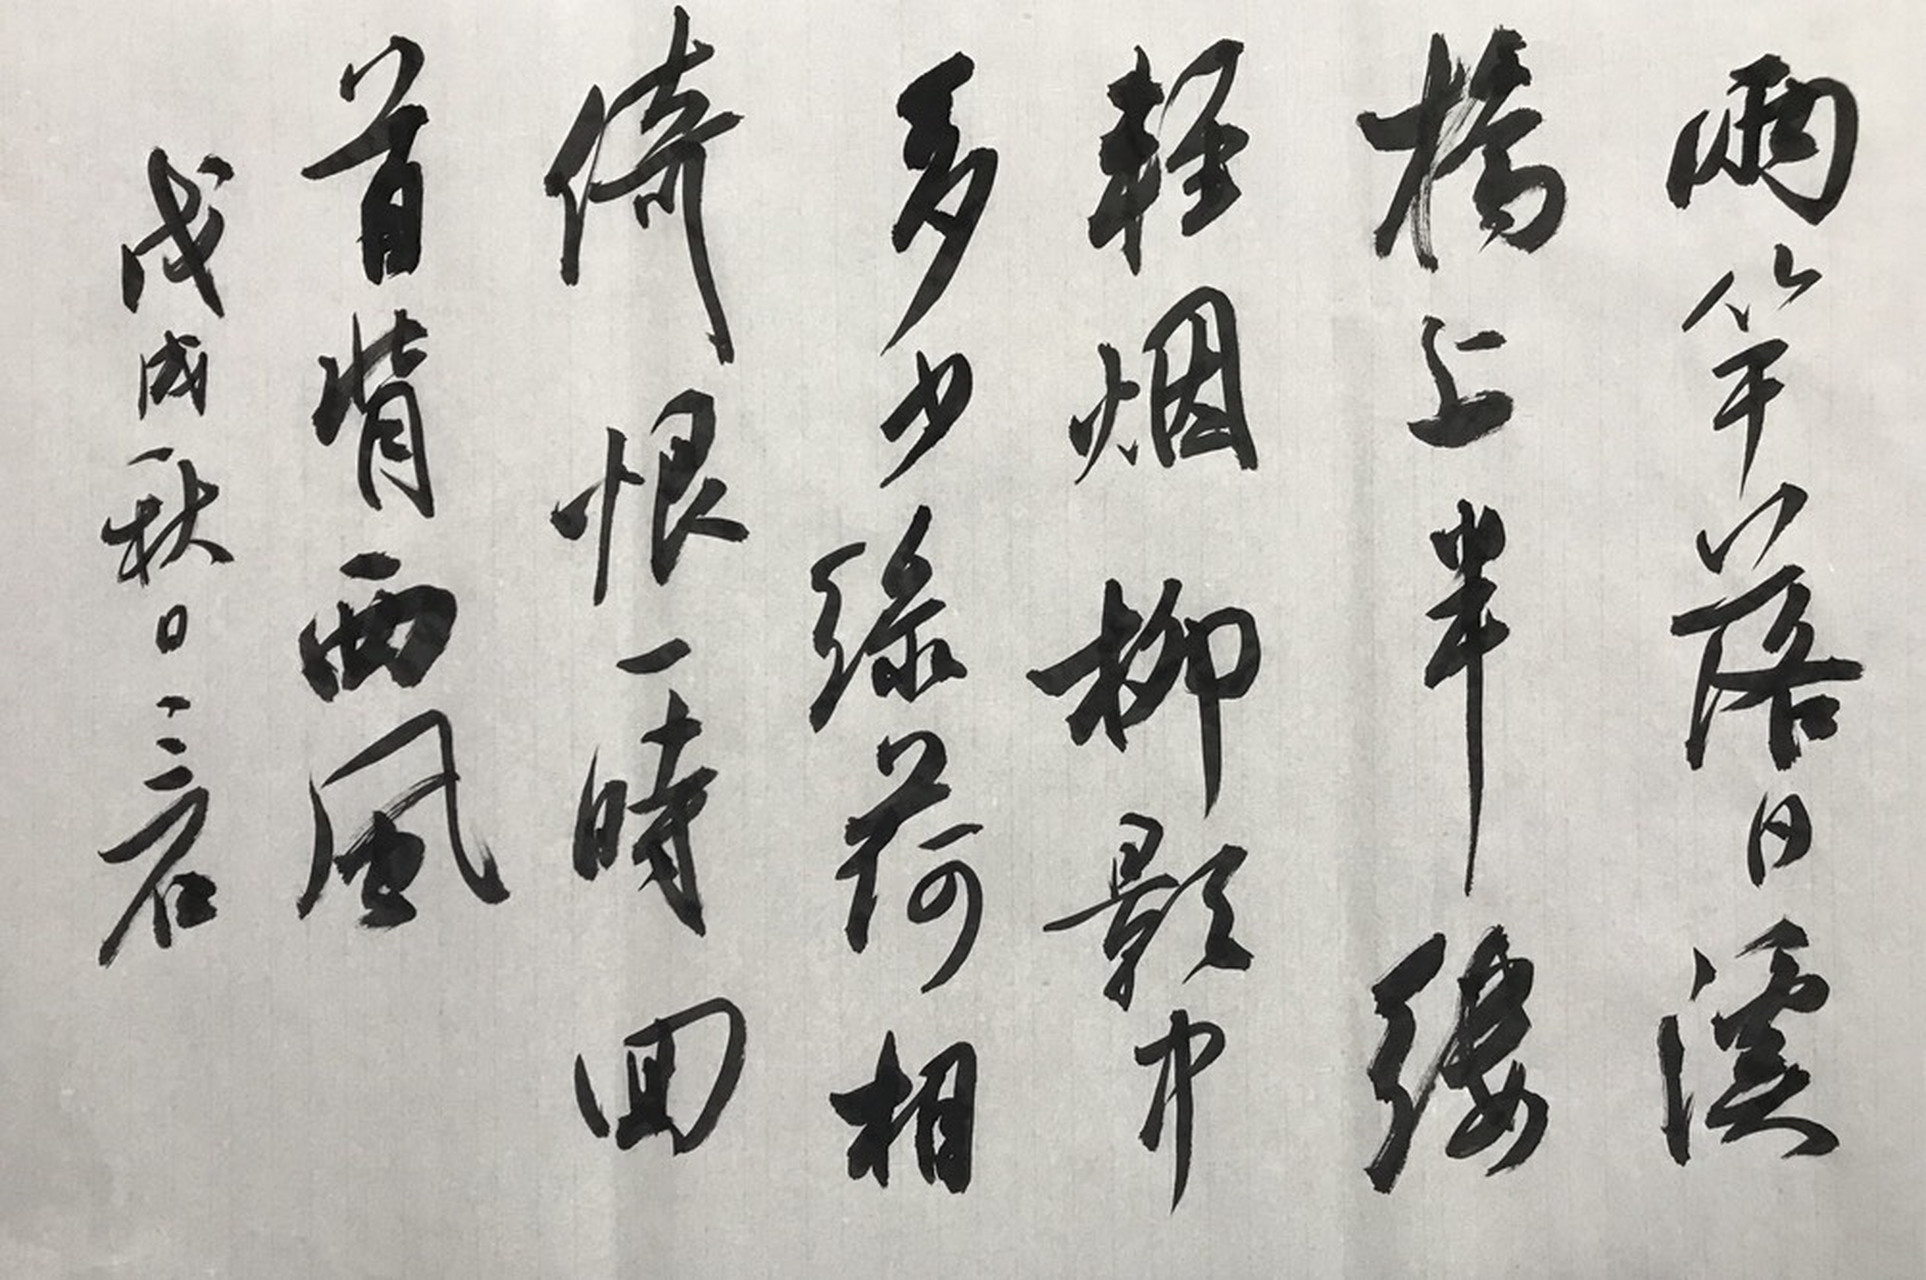 兩竿落日溪
橋上半縷
輕烟柳影中
多少綠荷相
倚恨一時回
首背西風
戊戌秋日三石